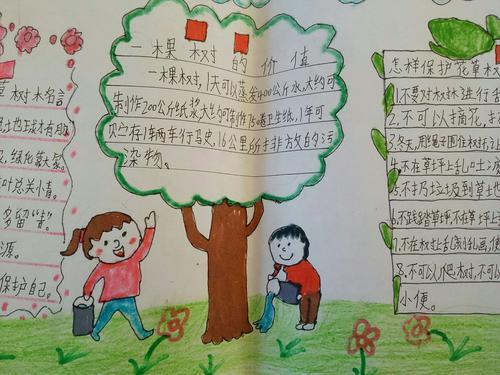 树木名言
绿化大家
叶总关情。
多留“青”。
源。
保护自己。
一棵树的价值
一棵树，1天可以蒸发400公斤水，大约可
制作200公斤纸浆，大约可制作750卷卫生纸，1年可
贮存1辆车行马史，16公里所排放的污
染物。
怎样保护花草木
1.不要对树林进行
2.不可以摘花，
3.冬天，用绳子围住树
4.不在草坪上乱吐
5.不扔垃圾到草
6.不践踏草坪，不在草坪
7.不在树上乱刻乱画，
8.不可以爬树，不可
小便。